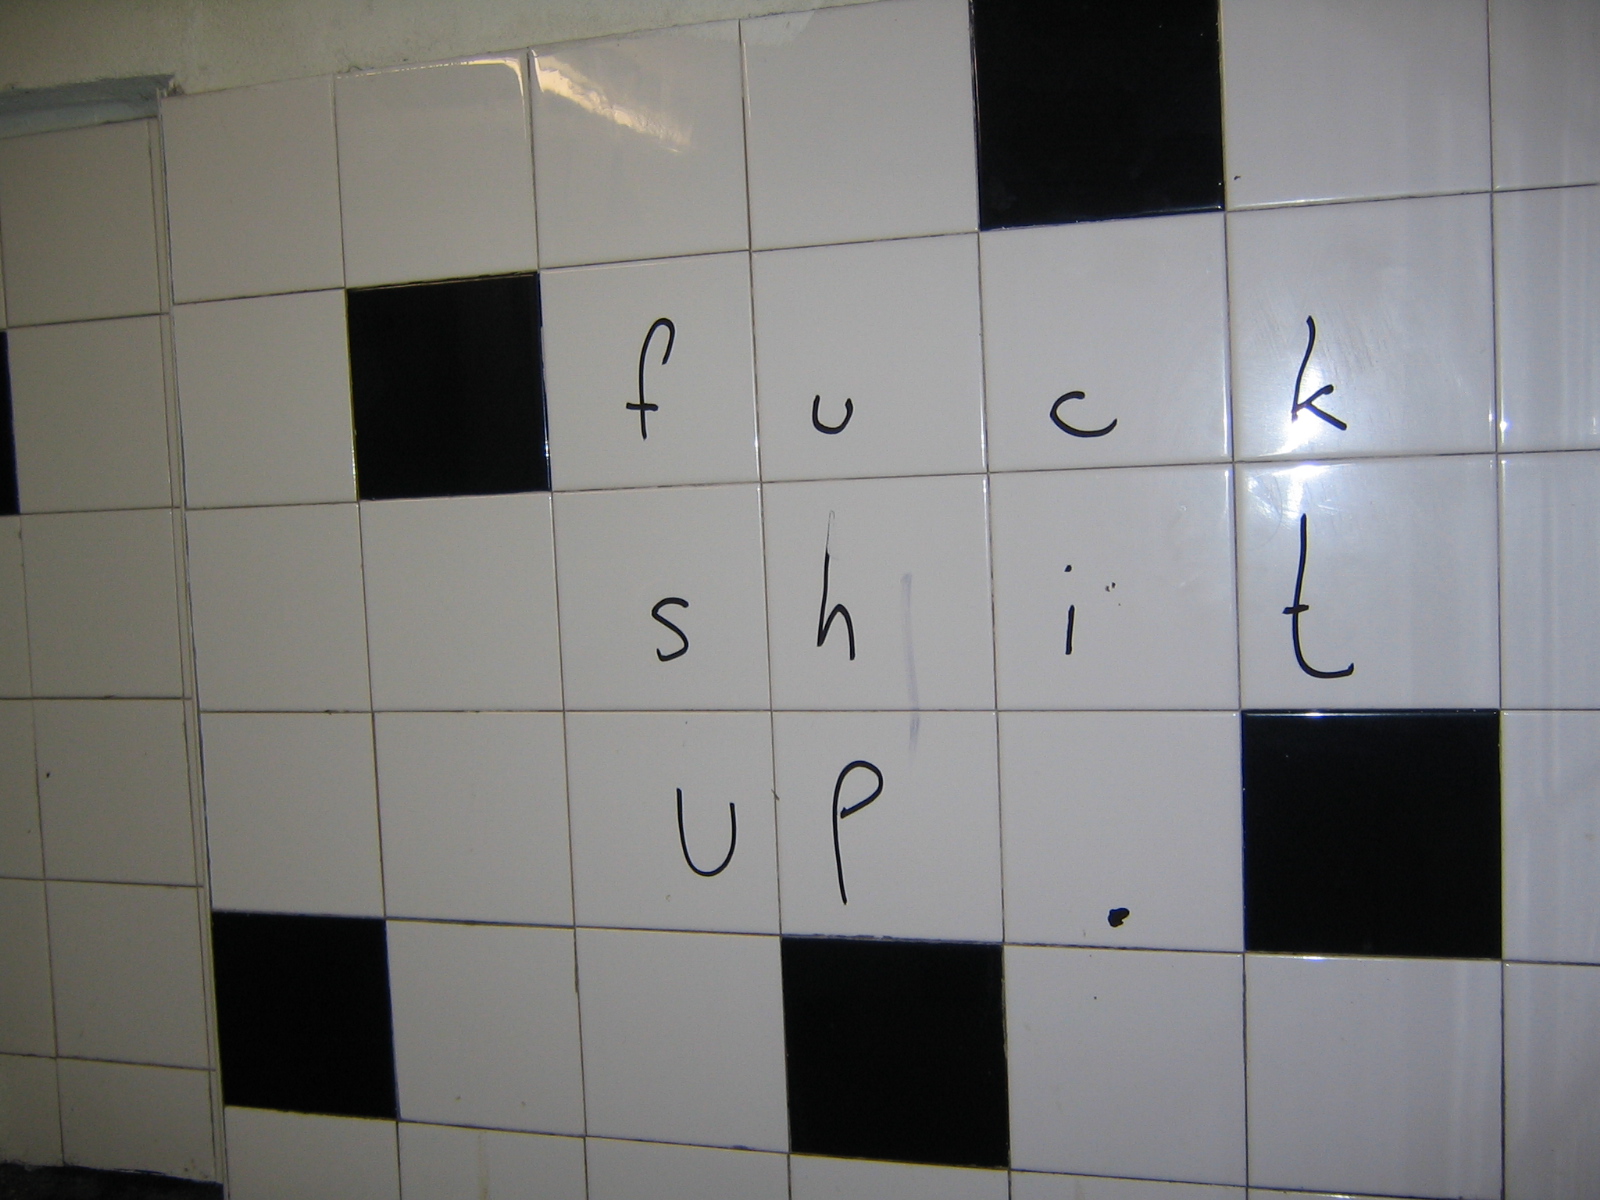 fuck
shit
up.